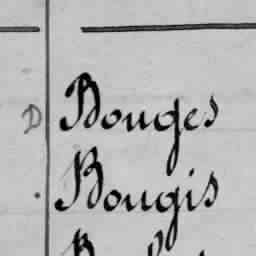 D Bouges
. Bougis